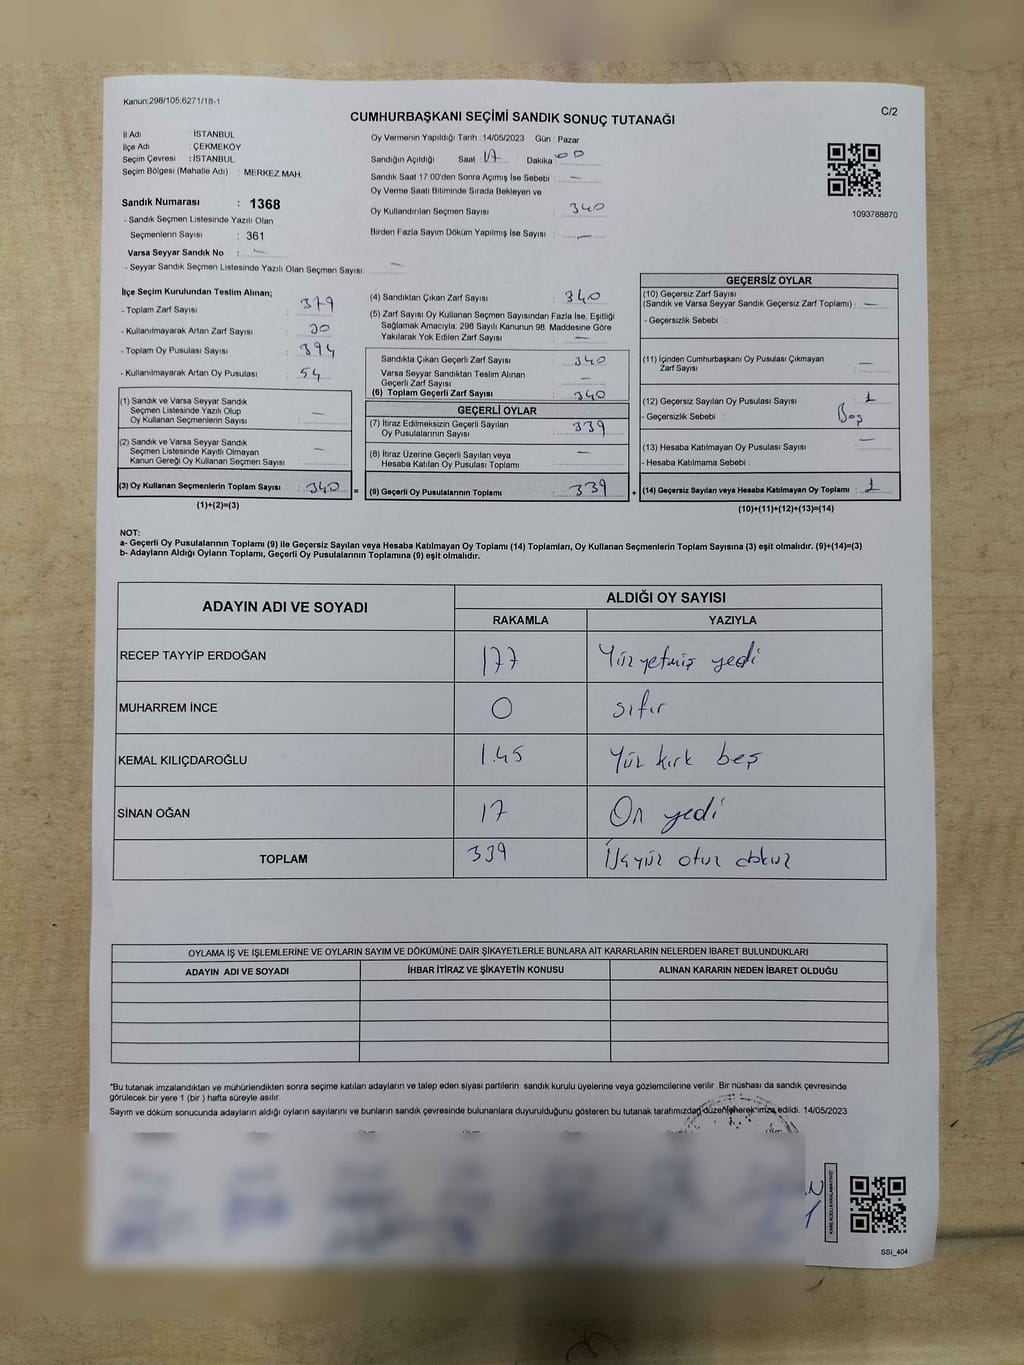 Kanun;298/105;6271/18-1
CUMHURBAŞKANI SEÇİMİ SANDIK SONUÇ TUTANAĞI
C/2
İl Adı : İSTANBUL
İlçe Adı : ÇEKMEKÖY
Seçim Çevresi : İSTANBUL
Seçim Bölgesi (Mahalle Adı) : MERKEZ MAH.
Oy Vermenin Yapıldığı Tarih : 14/05/2023 Gün : Pazar
Sandığın Açıldığı Saat : 17 Dakika : 00
Sandık Saat 17:00'den Sonra Açımış İse Sebebi : —
Oy Verme Saati Bitiminde Sırada Bekleyen ve
Oy Kullandırılan Seçmen Sayısı : 340
Birden Fazla Sayım Döküm Yapılmış İse Sayısı : —
1093788870
Sandık Numarası : 1368
- Sandık Seçmen Listesinde Yazılı Olan
Seçmenlerin Sayısı : 361
Varsa Seyyar Sandık No : —
- Seyyar Sandık Seçmen Listesinde Yazılı Olan Seçmen Sayısı: —
İlçe Seçim Kurulundan Teslim Alınan;
- Toplam Zarf Sayısı : 379
- Kullanılmayarak Artan Zarf Sayısı :
- Toplam Oy Pusulası Sayısı : 394
- Kullanılmayarak Artan Oy Pusulası : 54
(1) Sandık ve Varsa Seyyar Sandık
Seçmen Listesinde Yazılı Olup
Oy Kullanan Seçmenlerin Sayısı : —
(2) Sandık ve Varsa Seyyar Sandık
Seçmen Listesinde Kayıtlı Olmayan
Kanun Gereği Oy Kullanan Seçmen Sayısı : —
(3) Oy Kullanan Seçmenlerin Toplam Sayısı : 340 =
(1)+(2)=(3)
(4) Sandıktan Çıkan Zarf Sayısı : 340
(5) Zarf Sayısı Oy Kullanan Seçmen Sayısından Fazla İse, Eşitliği
Sağlamak Amacıyla; 298 Sayılı Kanunun 98. Maddesine Göre
Yakılarak Yok Edilen Zarf Sayısı : —
Sandıkta Çıkan Geçerli Zarf Sayısı : 340
Varsa Seyyar Sandıktan Teslim Alınan
Geçerli Zarf Sayısı : —
(6) Toplam Geçerli Zarf Sayısı : 340
GEÇERLİ OYLAR
(7) İtiraz Edilmeksizin Geçerli Sayılan
Oy Pusulalarının Sayısı : 339
(8) İtiraz Üzerine Geçerli Sayılan veya
Hesaba Katılan Oy Pusulası Toplamı : —
(9) Geçerli Oy Pusulalarının Toplamı : 339 +
GEÇERSİZ OYLAR
(10) Geçersiz Zarf Sayısı
(Sandık ve Varsa Seyyar Sandık Geçersiz Zarf Toplamı) : —
- Geçersizlik Sebebi :
(11) İçinden Cumhurbaşkanı Oy Pusulası Çıkmayan
Zarf Sayısı : —
(12) Geçersiz Sayılan Oy Pusulası Sayısı : 1
- Geçersizlik Sebebi : Boş
(13) Hesaba Katılmayan Oy Pusulası Sayısı : —
- Hesaba Katılmama Sebebi :
(14) Geçersiz Sayılan veya Hesaba Katılmayan Oy Toplamı : 1
(10)+(11)+(12)+(13)=(14)
NOT:
a- Geçerli Oy Pusulalarının Toplamı (9) ile Geçersiz Sayılan veya Hesaba Katılmayan Oy Toplamı (14) Toplamları, Oy Kullanan Seçmenlerin Toplam Sayısına (3) eşit olmalıdır. (9)+(14)=(3)
b- Adayların Aldığı Oyların Toplamı, Geçerli Oy Pusulalarının Toplamına (9) eşit olmalıdır.
ADAYIN ADI VE SOYADI
ALDIĞI OY SAYISI
RAKAMLA YAZIYLA
RECEP TAYYİP ERDOĞAN 177 Yüz yetmiş yedi
MUHARREM İNCE 0 sıfır
KEMAL KILIÇDAROĞLU 1.45 Yüz kırk beş
SİNAN OĞAN 17 On yedi
TOPLAM 339 Üçyüz otuz dokuz
OYLAMA İŞ VE İŞLEMLERİNE VE OYLARIN SAYIM VE DÖKÜMÜNE DAİR ŞİKAYETLERLE BUNLARA AİT KARARLARIN NELERDEN İBARET BULUNDUKLARI
ADAYIN ADI VE SOYADI İHBAR İTİRAZ VE ŞİKAYETİN KONUSU ALINAN KARARIN NEDEN İBARET OLDUĞU
*Bu tutanak imzalandıktan ve mühürlendikten sonra seçime katılan adayların ve talep eden siyasi partilerin sandık kurulu üyelerine veya gözlemcilerine verilir .Bir nüshası da sandık çevresinde
görülecek bir yere 1 (bir ) hafta süreyle asılır.
Sayım ve döküm sonucunda adayların aldığı oyların sayılarını ve bunların sandık çevresinde bulunanlara duyurulduğunu gösteren bu tutanak tarafımızdan düzenlenerek imza edildi. 14/05/2023
SSI_404